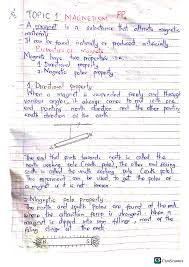 TOPIC 1 MAGNETISM
A magnet is a substance that attracts magnetic
materials
It can be found naturally or produced artificially
Properties of magnets
Magnets have two properties i.e.
1. Directional property
2. Magnetic poles property
1. Directional property
When a magnet is suspended freely and through
various angles, it always comes to rest with one
end pointing north direction and the other pointing
south direction of the earth
The end that points towards north is called the
north seeking pole (north pole). The other end facing
south is called the south seeking pole (south pole).
This experiment can be used to get the poles of
a magnet if it is not known
Magnetic pole property
The north and south poles are found at the ends
where the attraction force is strongest. When a
magnet is dipped into iron filings, most of the
filings cling at the ends
CamScanner